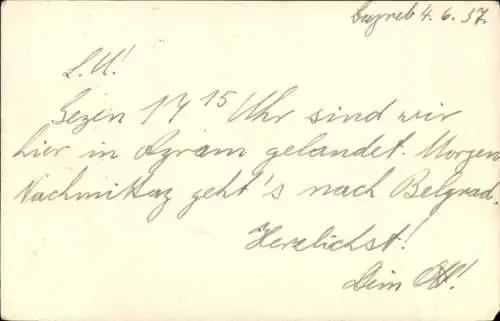 Zagreb 4. 6. 37.
L. U!
Gegen 17 15 Uhr sind wir
hier in Agram gelandet. Morgen
Nachmittag geht's nach Belgrad.
Herzlichst!
Dein